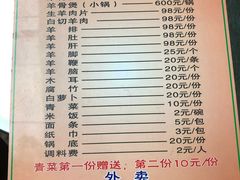 羊骨煲(小锅) 600元/锅
生羊肉片 98元/份
白切羊肉 98元/份
羊排 98元/份
羊肚 98元/份
羊肝 98元/份
羊脚 25元/个
羊鞭 20元/条
羊脑 20元/个
木耳 20元/份
腐竹 20元/份
白萝卜 20元/份
青菜 10元/份
米饭 2元/碗
面条 5元/份
纸巾 3元/包
锅底 20元/份
调料费 2元/人
青菜第一份赠送,第二份10元/份
外卖